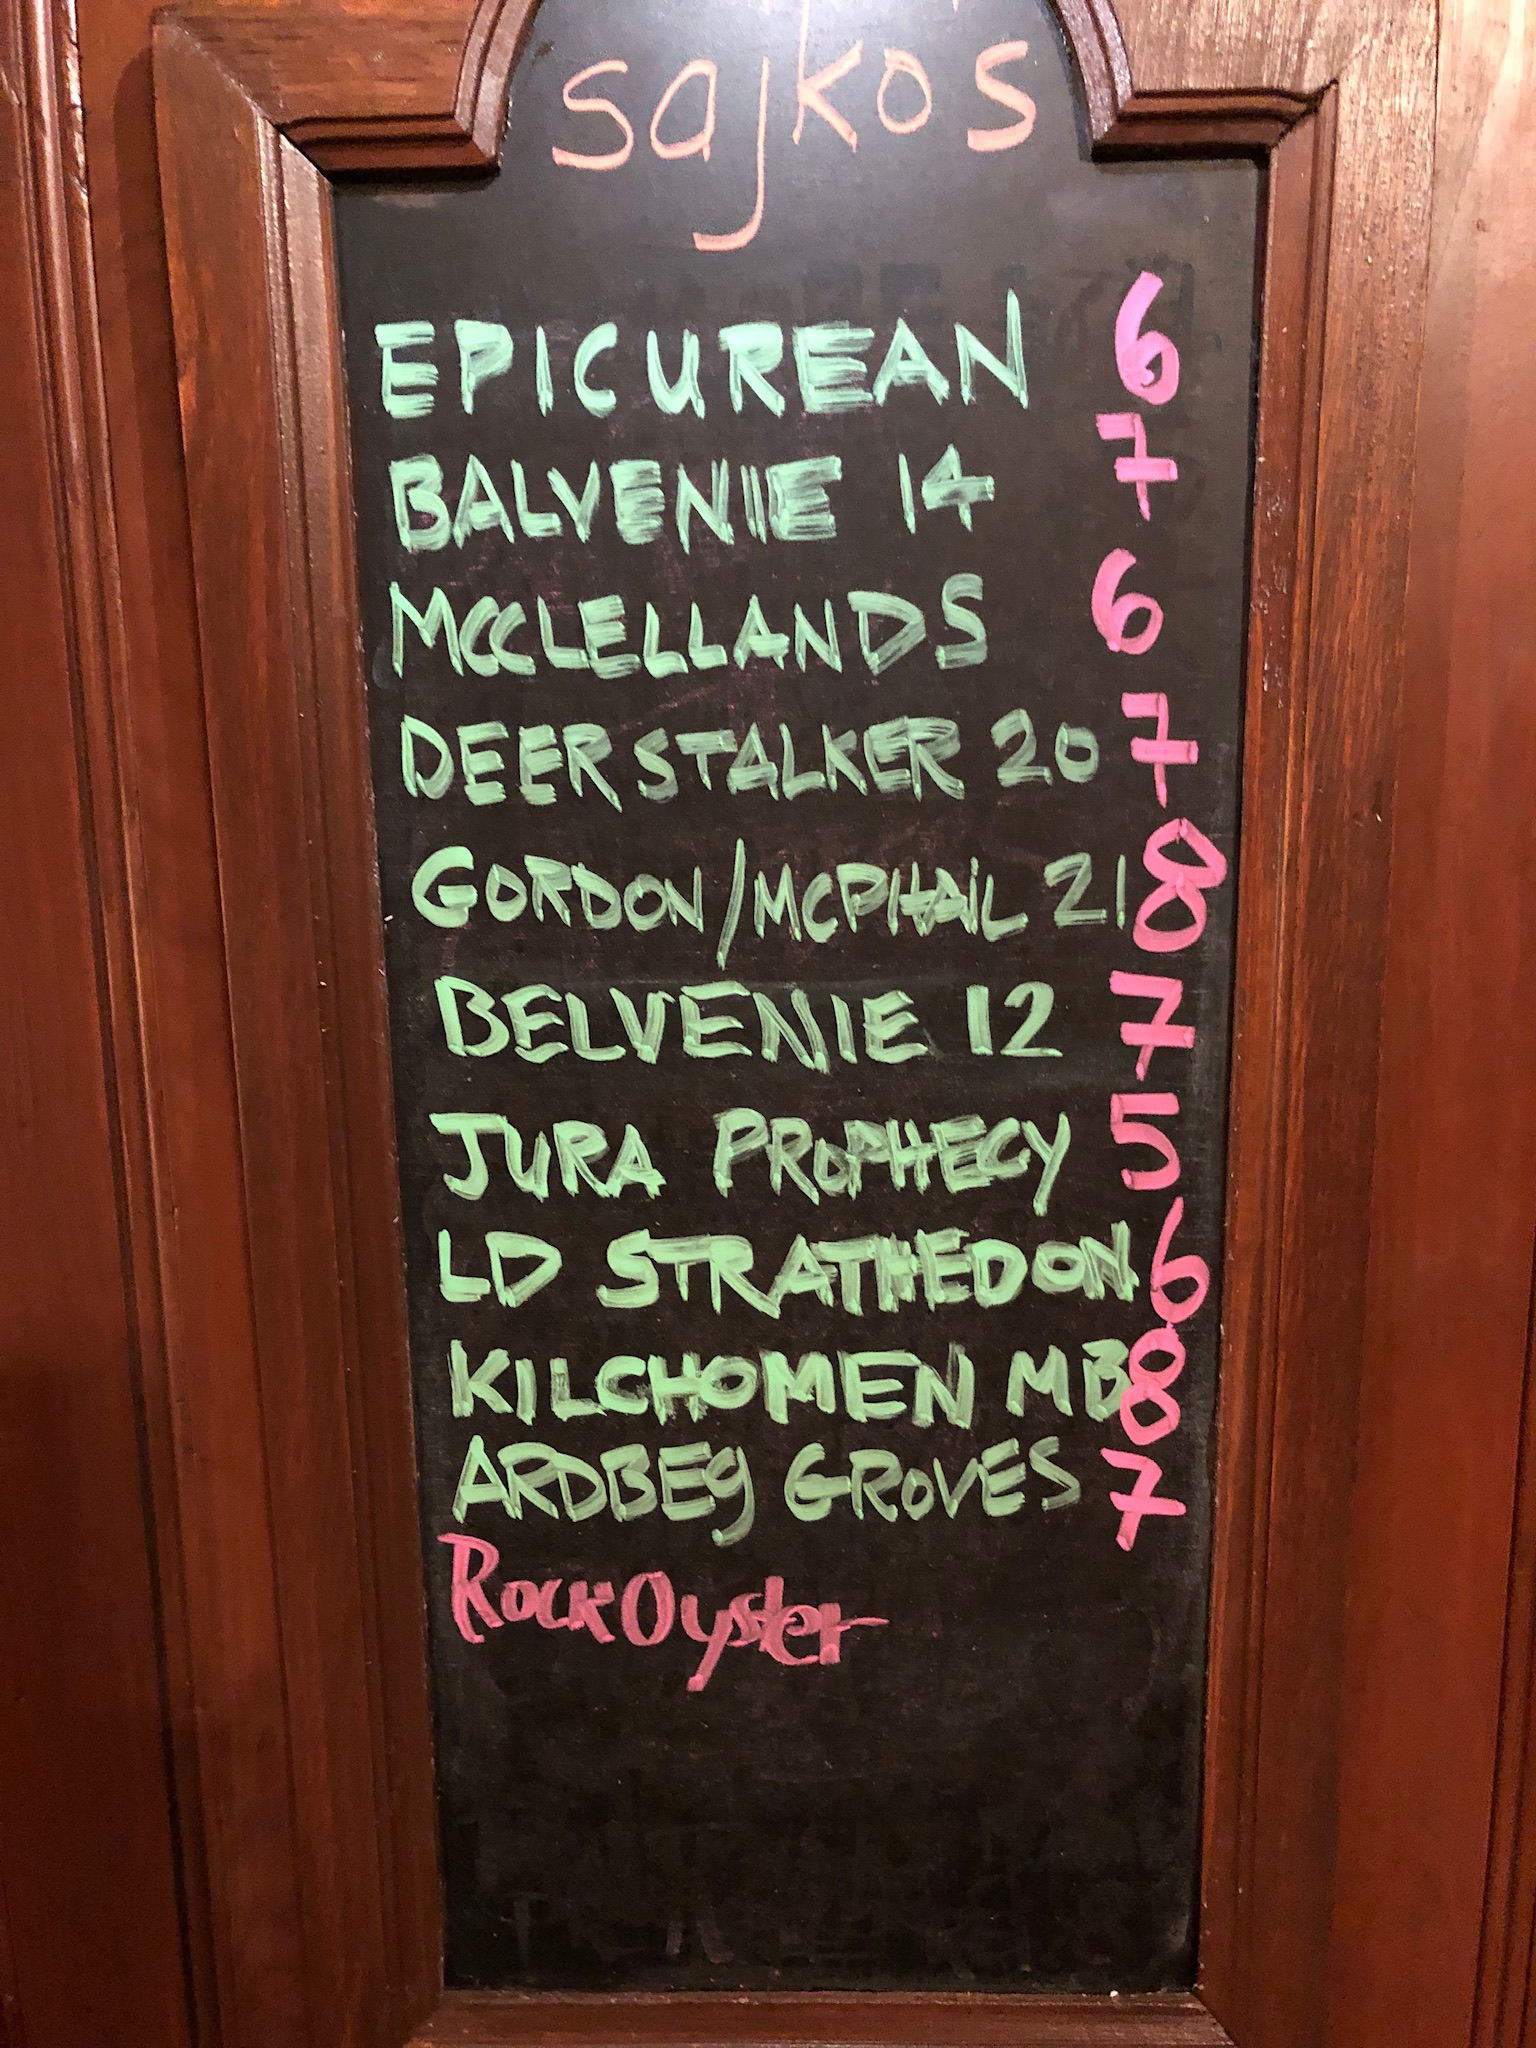 sajkos
EPICUREAN 6
BALVENIE 14 7
MCCLELLANDS 6
DEERSTALKER 20 7
GORDON/MCPHAIL 21 8
BELVENIE 12 7
JURA PROPHECY 5
LD STRATHEDON 6
KILCHOMEN MB 8
ARDBEg GROVES 7
RockOyster